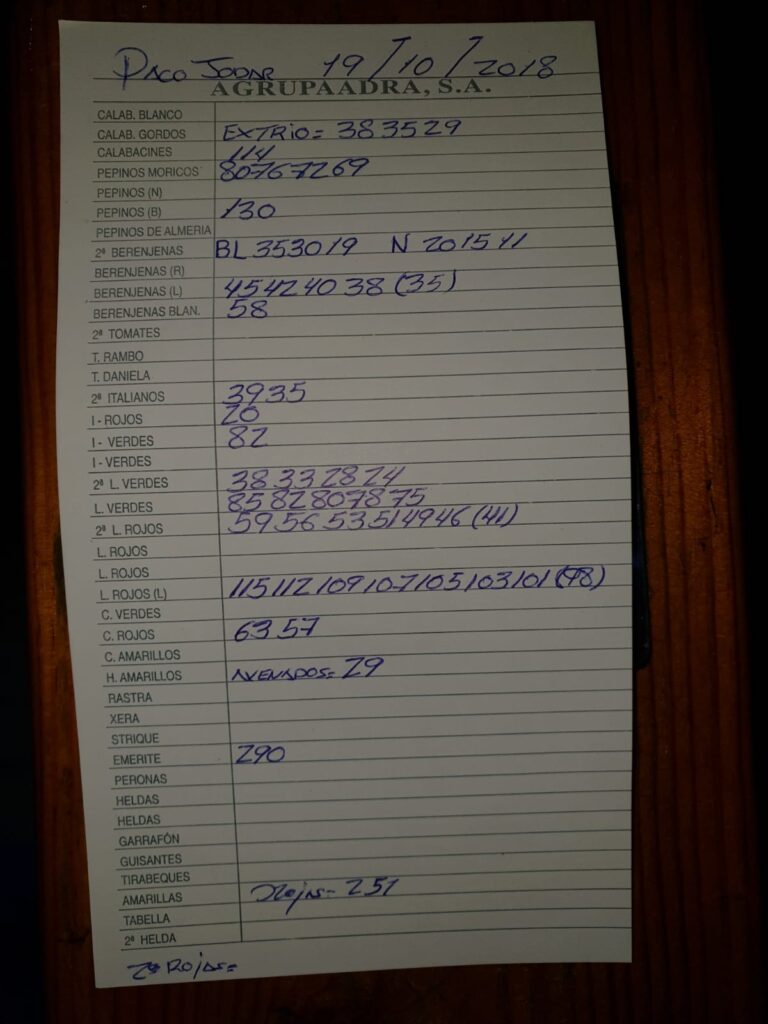 PACO JODAR 19/10/2018
AGRUPAADRA, S.A.
CALAB. BLANCO
CALAB. GORDOS EXTRIO= 38 35 29
CALABACINES 114
PEPINOS MORICOS 80 76 72 69
PEPINOS (N)
PEPINOS (B) 130
PEPINOS DE ALMERIA
2ª BERENJENAS BL 35 30 19 N 20 15 11
BERENJENAS (R)
BERENJENAS (L) 45 42 40 38 (35)
BERENJENAS BLAN. 58
2ª TOMATES
T. RAMBO
T. DANIELA
2ª ITALIANOS 39 35
I - ROJOS 20
I - VERDES 82
I - VERDES
2ª L. VERDES 38 33 28 24
L. VERDES 85 82 80 78 75
2ª L. ROJOS 59 56 53 51 49 46 (41)
L. ROJOS
L. ROJOS
L. ROJOS (L) 115 112 109 107 105 103 101 (98)
C. VERDES
C. ROJOS 63 57
C. AMARILLOS
H. AMARILLOS AVENADOS= 29
RASTRA
XERA
STRIQUE
EMERITE 290
PERONAS
HELDAS
HELDAS
GARRAFÓN
GUISANTES
TIRABEQUES
AMARILLAS = 251
TABELLA
2ª HELDA
2ª ROJAS=